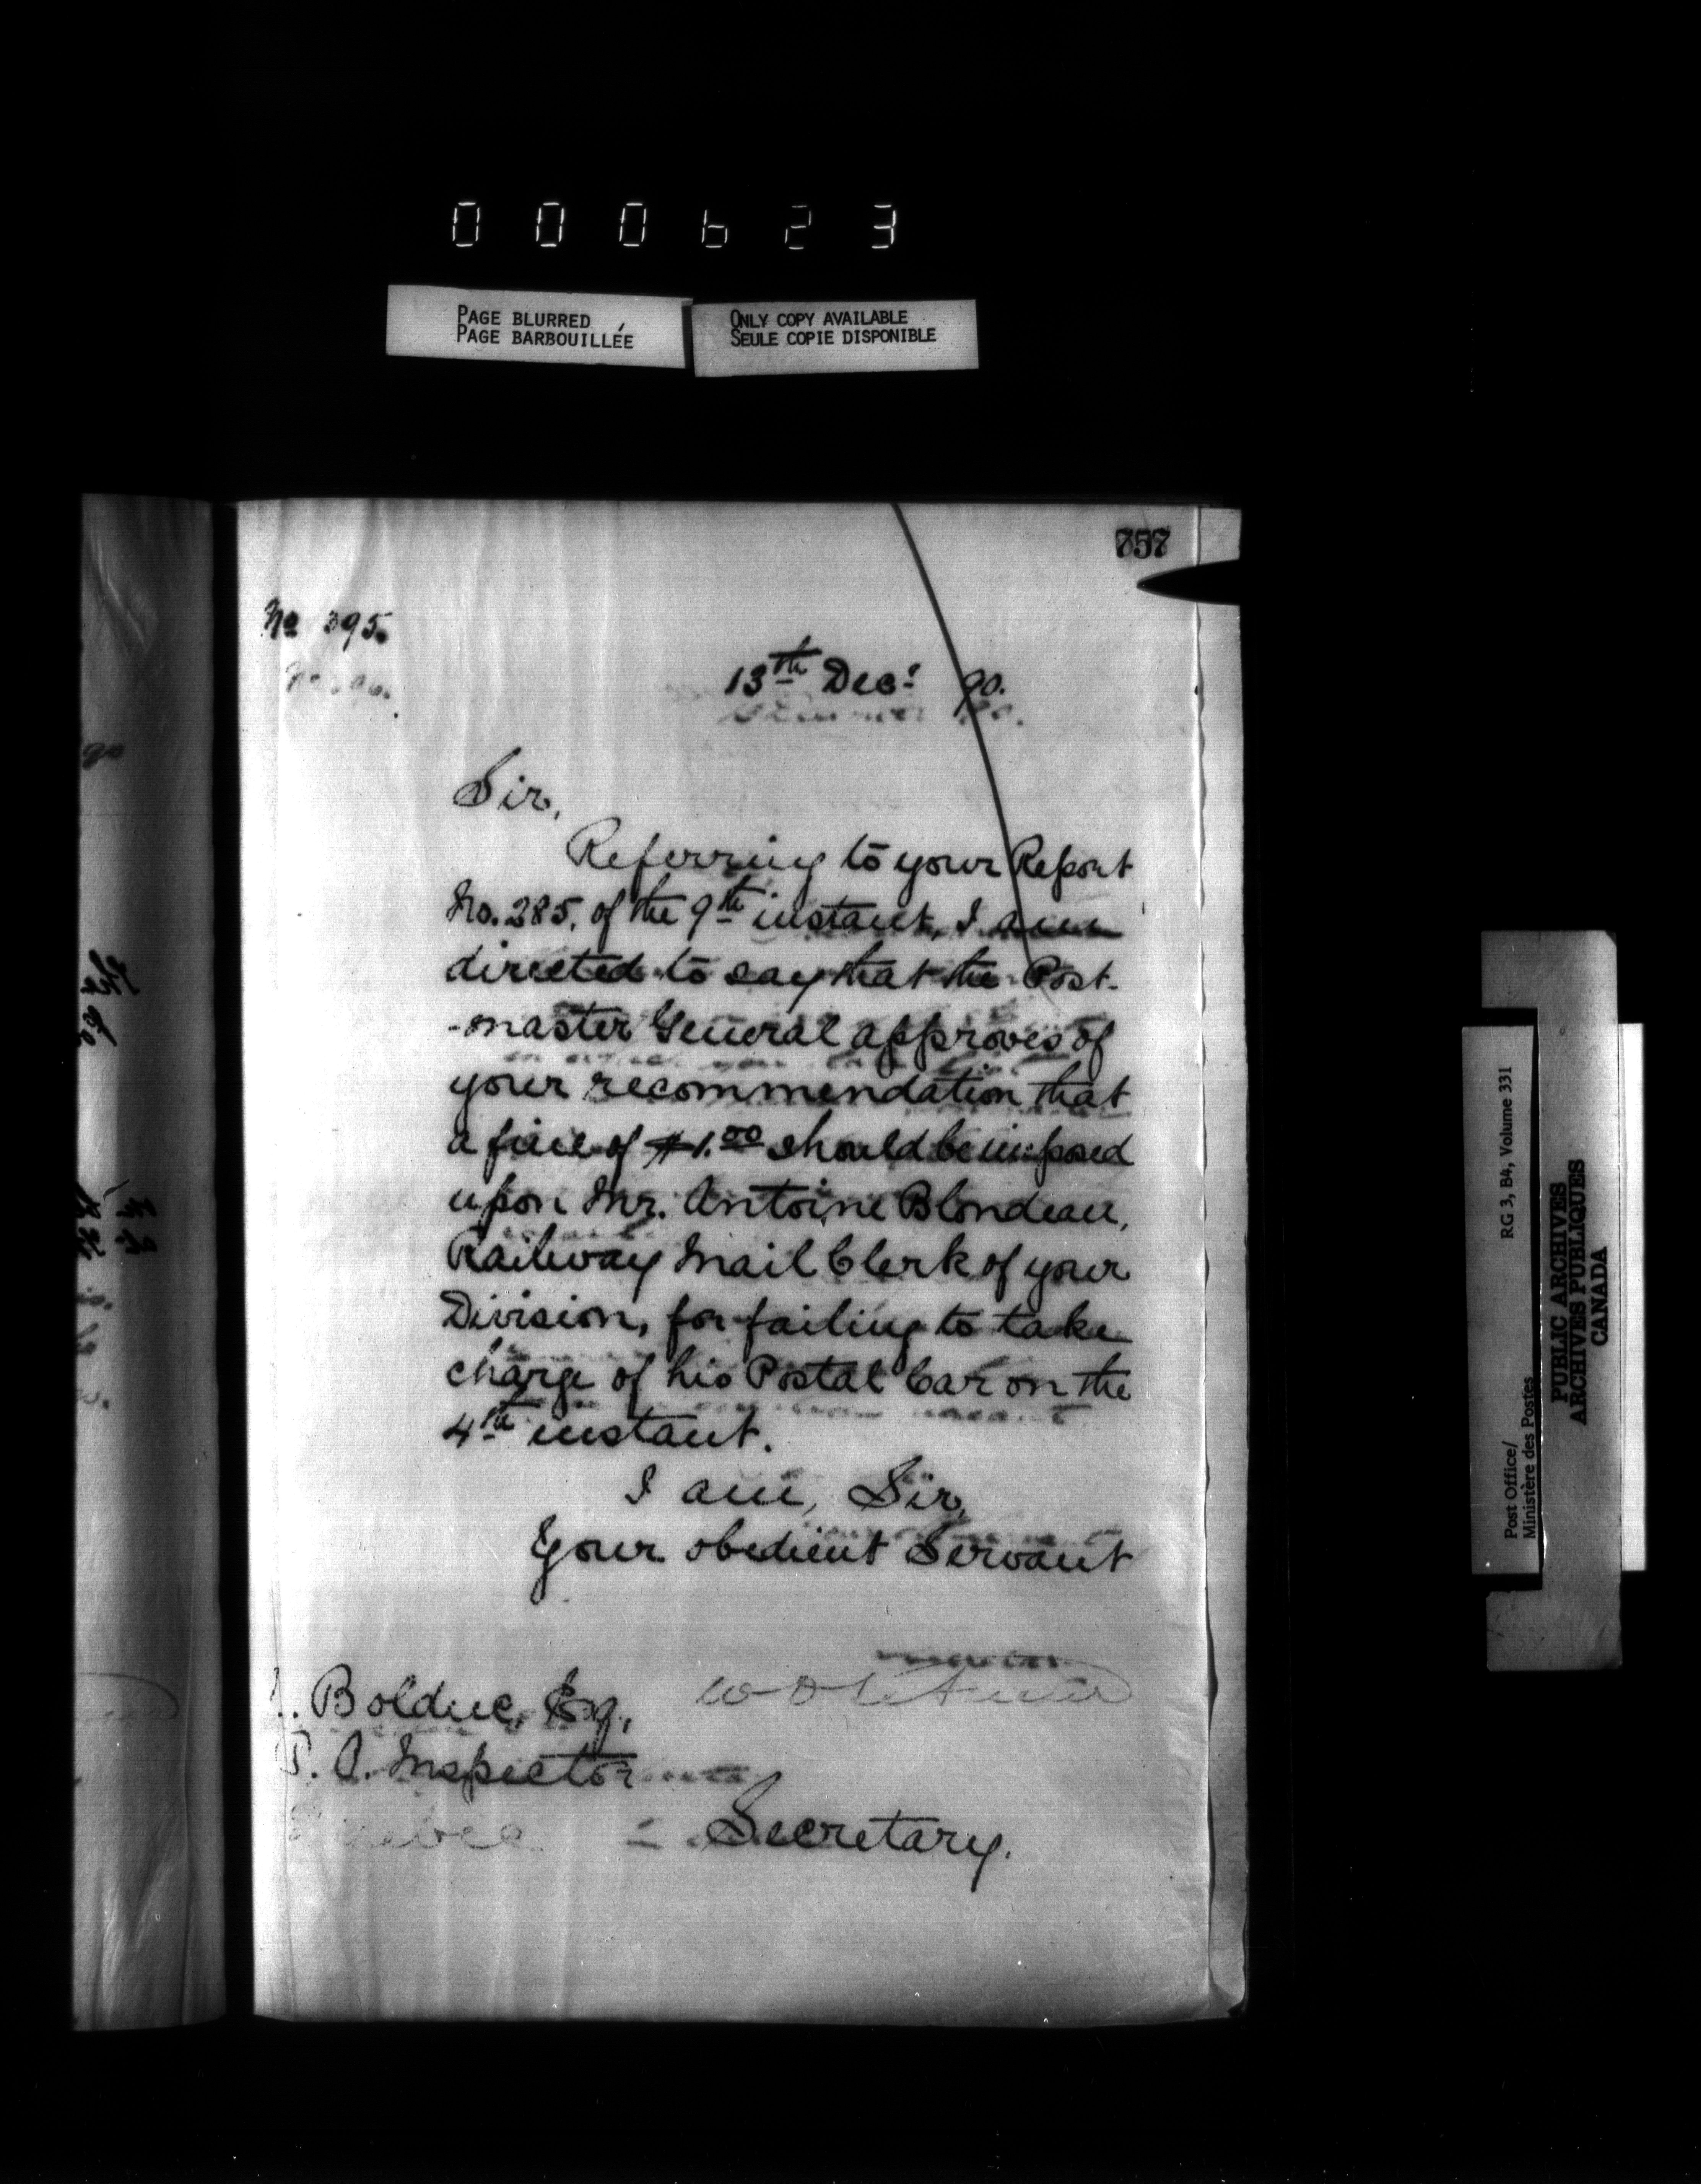 000623
PAGE BLURRED
PAGE BARBOUILLÉE
ONLY COPY AVAILABLE
SEULE COPIE DISPONIBLE
757
No 395.
13th Decr 90.
Sir,
Referring to your Report
No. 285, of the 9th instant, I am
directed to say that the Post-
-master General approves of
your recommendation that
a fine of $1.00 should be imposed
upon Mr. Antoine Blondeau,
Railway Mail Clerk of your
Division, for failing to take
charge of his Postal Car on the
4th instant.
I am, Sir,
Your obedient Servant
Bolduc, Esq,
P. O. Inspector
Secretary.
RG 3, B4, Volume 331
Post Office/
Ministère des Postes
PUBLIC ARCHIVES
ARCHIVES PUBLIQUES
CANADA